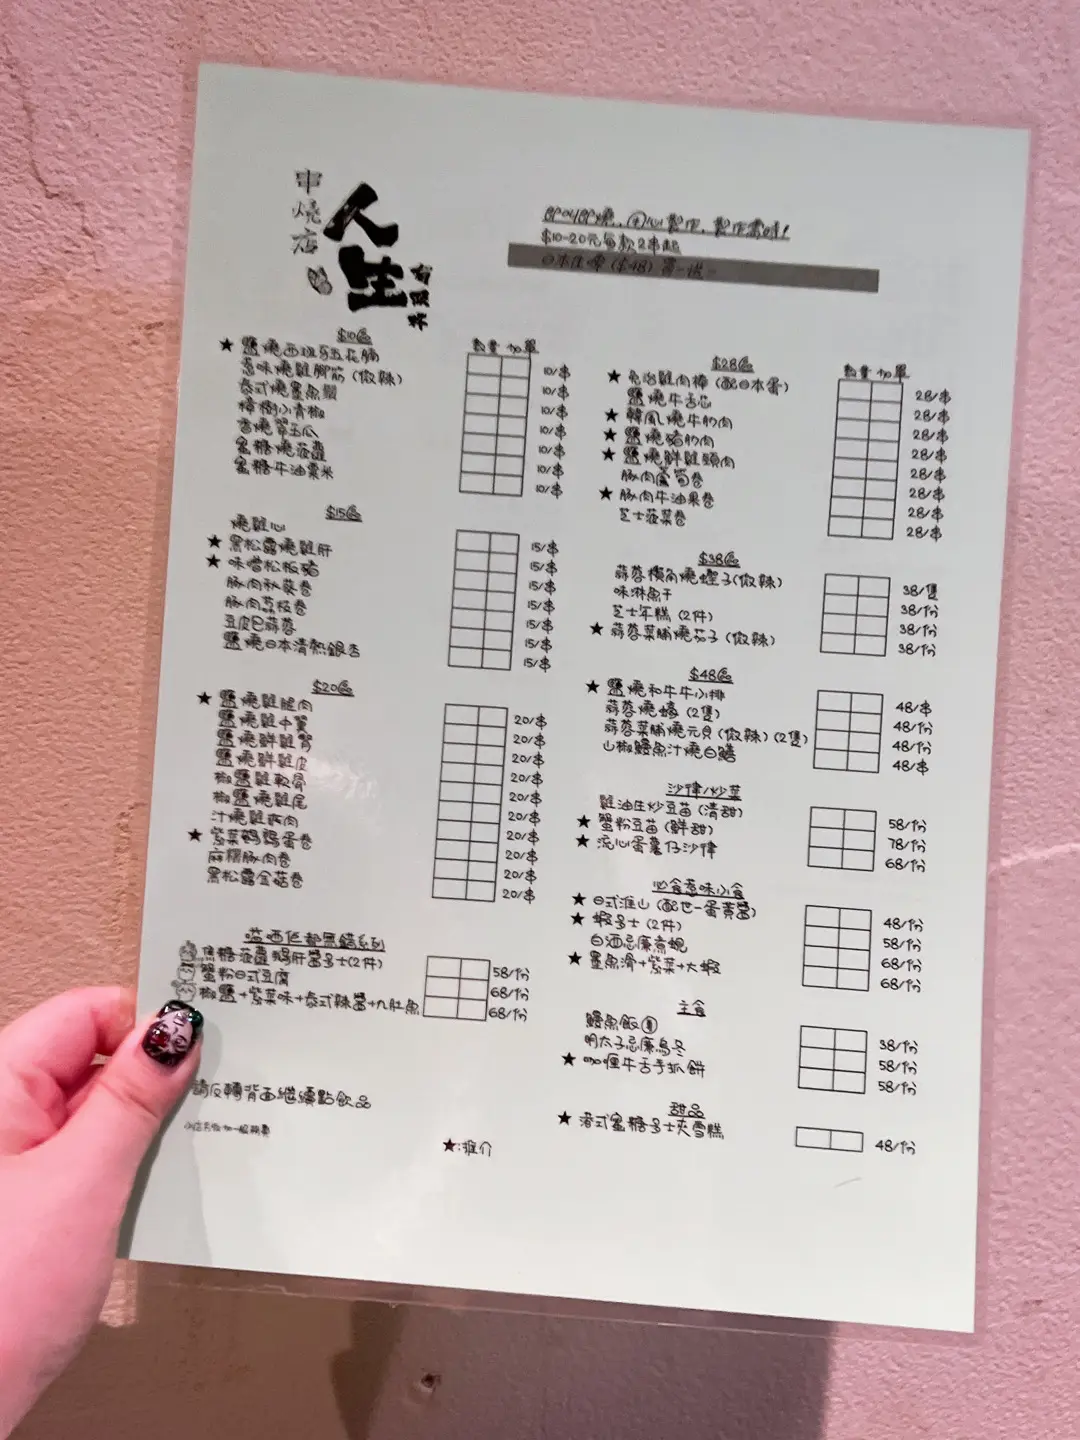 串燒店
人生
有限杯
即叫即燒，用心製作，製作需時！
$10-20元每款2串起
日本生啤 ($48) 買一送一
$10區
數量 加單
★ 鹽燒西班牙五花腩 10/串
惹味燒雞腳筋 (微辣) 10/串
泰式燒墨魚鬚 10/串
樟樹小青椒 10/串
香燒翠玉瓜 10/串
蜜糖燒菠蘿 10/串
蜜糖牛油粟米 10/串
$15區
燒雞心 15/串
★ 黑松露燒雞肝 15/串
★ 味噌松板豬 15/串
豚肉秋葵卷 15/串
豚肉荔枝卷 15/串
豆皮巴蒜蓉 15/串
鹽燒日本清熱銀杏 15/串
$20區
★ 鹽燒雞腿肉 20/串
鹽燒雞中翼 20/串
鹽燒鮮雞腎 20/串
鹽燒鮮雞皮 20/串
椒鹽雞軟骨 20/串
椒鹽燒雞尾 20/串
汁燒雞 肉 20/串
★ 紫菜鵪鶉蛋卷 20/串
麻糬豚肉卷 20/串
黑松露金菇卷 20/串
嗌晒佢都無錯系列
焦糖菠蘿鵝肝醬多士(2件) 58/份
蟹粉日式豆腐 68/份
椒鹽+紫菜味+泰式辣醬+九肚魚 68/份
請反轉背面繼續點飲品
小店另收加一服務費
★:推介
$28區
數量 加單
★ 免治雞肉棒 (配日本蛋) 28/串
鹽燒牛舌芯 28/串
★ 韓風燒牛肋肉 28/串
★ 鹽燒豬肋肉 28/串
★ 鹽燒鮮雞頸肉 28/串
豚肉蘆筍卷 28/串
★ 豚肉牛油果卷 28/串
芝士菠菜卷 28/串
$38區
蒜蓉橫角燒蟶子(微辣) 38/隻
味淋魚干 38/份
芝士年糕 (2件) 38/份
★ 蒜蓉菜脯燒茄子 (微辣) 38/份
$48區
★ 鹽燒和牛牛小排 48/串
蒜蓉燒蠔 (2隻) 48/份
蒜蓉菜脯燒元貝 (微辣) (2隻) 48/份
山椒鰻魚汁燒白鱔 48/串
沙律/炒菜
雞油生炒豆苗 (清甜) 58/份
★ 蟹粉豆苗 (鮮甜) 78/份
★ 流心蛋薯仔沙律 68/份
必食惹味小食
★ 日式淮山 (配世一蛋黃醬) 48/份
★ 蝦多士 (2件) 58/份
白酒忌廉煮蜆 68/份
★ 墨魚滑+紫菜+大蝦 68/份
主食
鰻魚飯 38/份
明太子忌廉烏冬 58/份
★ 咖喱牛舌手抓餅 58/份
甜品
★ 港式蜜糖多士夾雪糕 48/份